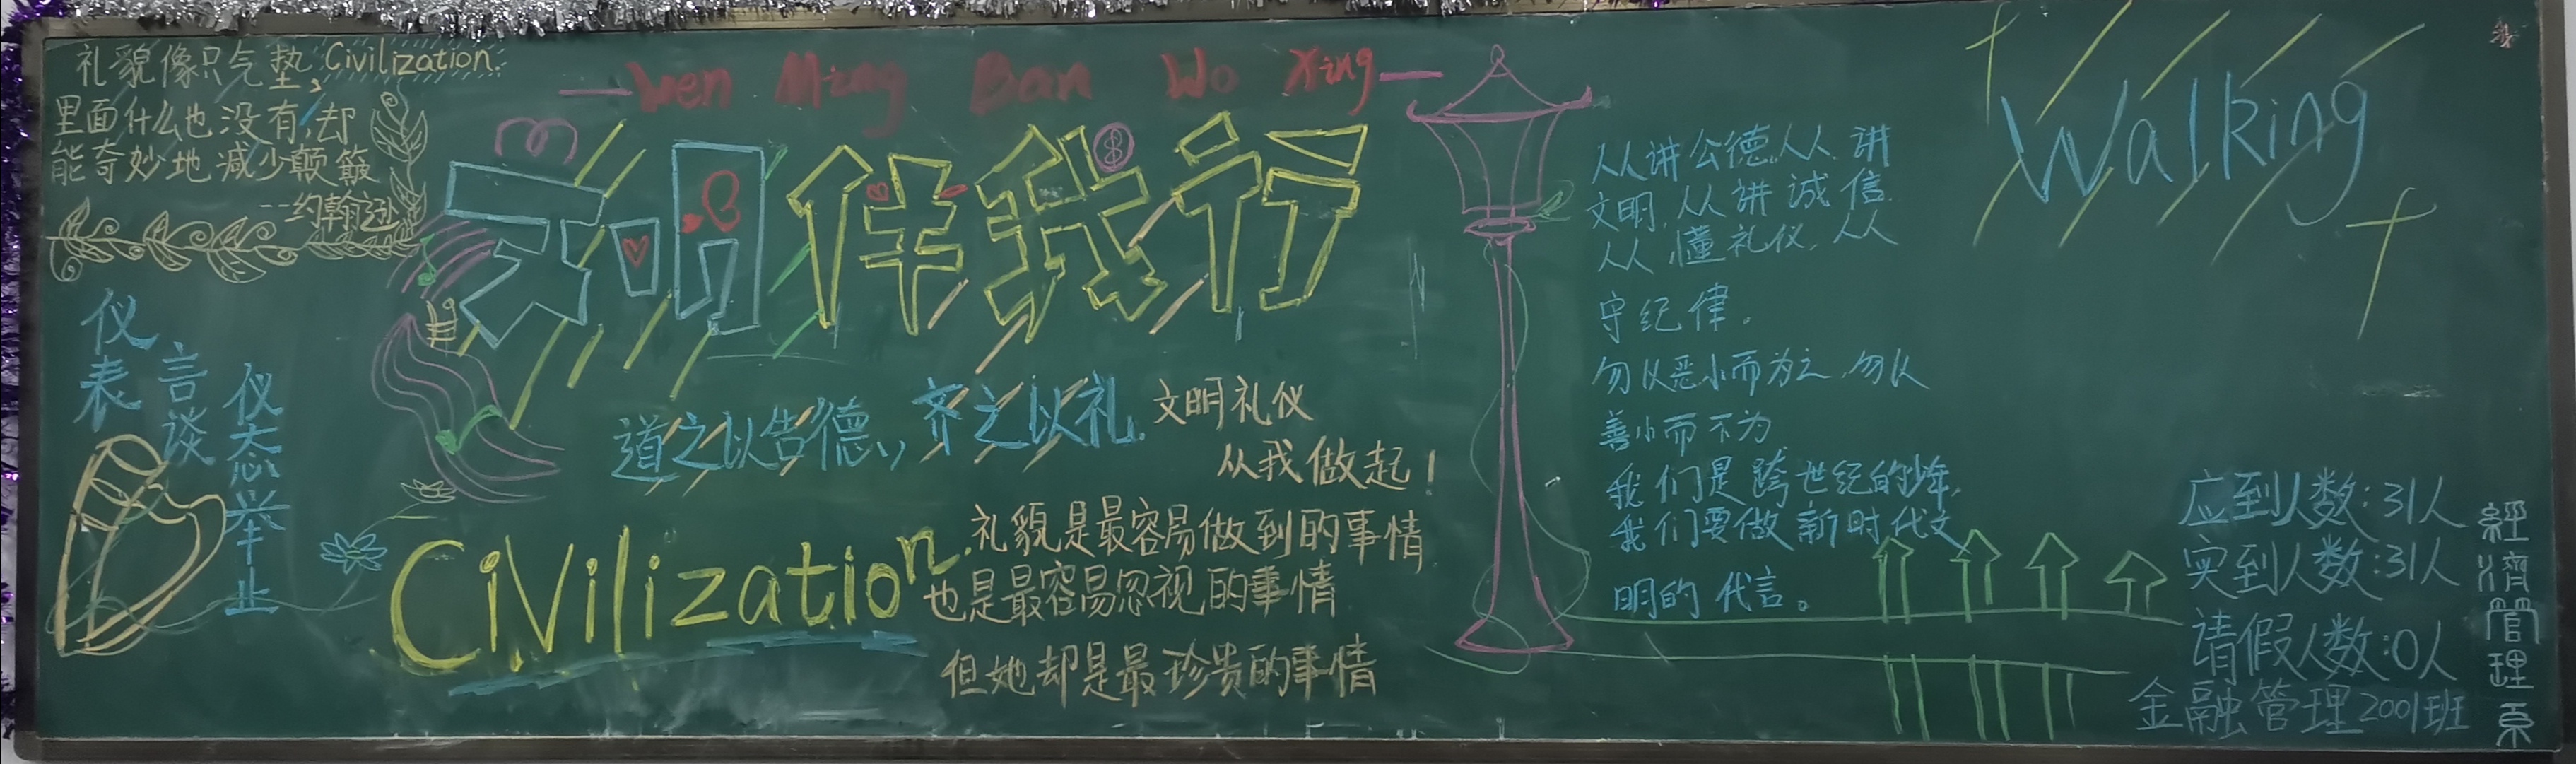 礼貌像只气垫,
Civilization.
里面什么也没有,却
能奇妙地减少颠簸
--约翰逊
Wen Ming Ban Wo Xing
文明伴我行
仪表
言谈
仪态举止
道之以告德,齐之以礼.
文明礼仪
从我做起!
Civilization.
礼貌是最容易做到的事情
也是最容易忽视的事情
但她却是最珍贵的事情
人人讲公德,人人讲
文明,人人讲诚信.
人人懂礼仪,人人
守纪律。
勿以恶小而为之,勿以
善小而不为
我们是跨世纪的少年,
我们要做新时代文
明的代言。
Walking
应到人数:31人
实到人数:31人
请假人数:0人
金融管理2001班
經濟管理系